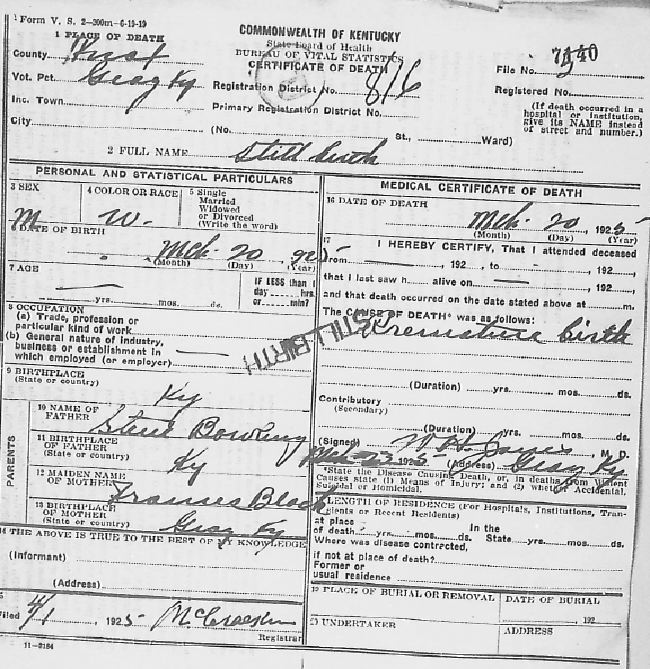 1 Form V. S. 2—300m—6-19-19
COMMONWEALTH OF KENTUCKY
State Board of Health
BUREAU OF VITAL STATISTICS
CERTIFICATE OF DEATH
1 PLACE OF DEATH
County Knox
Vot. Pct. Gray Ky
Inc. Town
City
Registration District No. 816
Primary Registration District No.
(No. St., Ward)
File No.
Registered No.
(If death occurred in a
hospital or institution,
give its NAME instead
of street and number.)
2 FULL NAME Still birth
PERSONAL AND STATISTICAL PARTICULARS
3 SEX
M
4 COLOR OR RACE
W.
5 Single
Married
Widowed
or Divorced
(Write the word)
DATE OF BIRTH
Mch 20 925
(Month) (Day) (Year)
7 AGE
yrs. mos. ds.
IF LESS than 1
day hrs.
or min?
8 OCCUPATION
(a) Trade, profession or
particular kind of work
(b) General nature of industry,
business or establishment in
which employed (or employer)
9 BIRTHPLACE
(State or country)
Ky
PARENTS
10 NAME OF
FATHER
Bowling
11 BIRTHPLACE
OF FATHER
(State or country)
Ky
12 MAIDEN NAME
OF MOTHER
Frances Black
13 BIRTHPLACE
OF MOTHER
(State or country)
Gray Ky
14 THE ABOVE IS TRUE TO THE BEST OF MY KNOWLEDGE
(Informant)
(Address)
Filed 4/1 1925 McCracken
Registrar
11—3184
MEDICAL CERTIFICATE OF DEATH
16 DATE OF DEATH
Mch 20 1925
(Month) (Day) (Year)
17
I HEREBY CERTIFY, That I attended deceased
from , 192 , to , 192 ,
that I last saw h alive on , 192 ,
and that death occurred on the date stated above at m.
The CAUSE OF DEATH* was as follows:
Premature birth
STILLBIRTH
(Duration) yrs. mos. ds.
Contributory
(Secondary)
(Duration) yrs. mos. ds.
(Signed) W H , M. D.
Mch 23 1925 (Address) Gray Ky
*State the Disease Causing Death, or, in deaths from Violent
Causes state (1) Means of Injury; and (2) whether Accidental,
Suicidal or Homicidal.
LENGTH OF RESIDENCE (For Hospitals, Institutions, Tran-
sients or Recent Residents)
At place In the
of death yrs. mos. ds. State yrs. mos. ds.
Where was disease contrected,
if not at place of death?
Former or
usual residence
19 PLACE OF BURIAL OR REMOVAL
DATE OF BURIAL
, 192
20 UNDERTAKER
ADDRESS